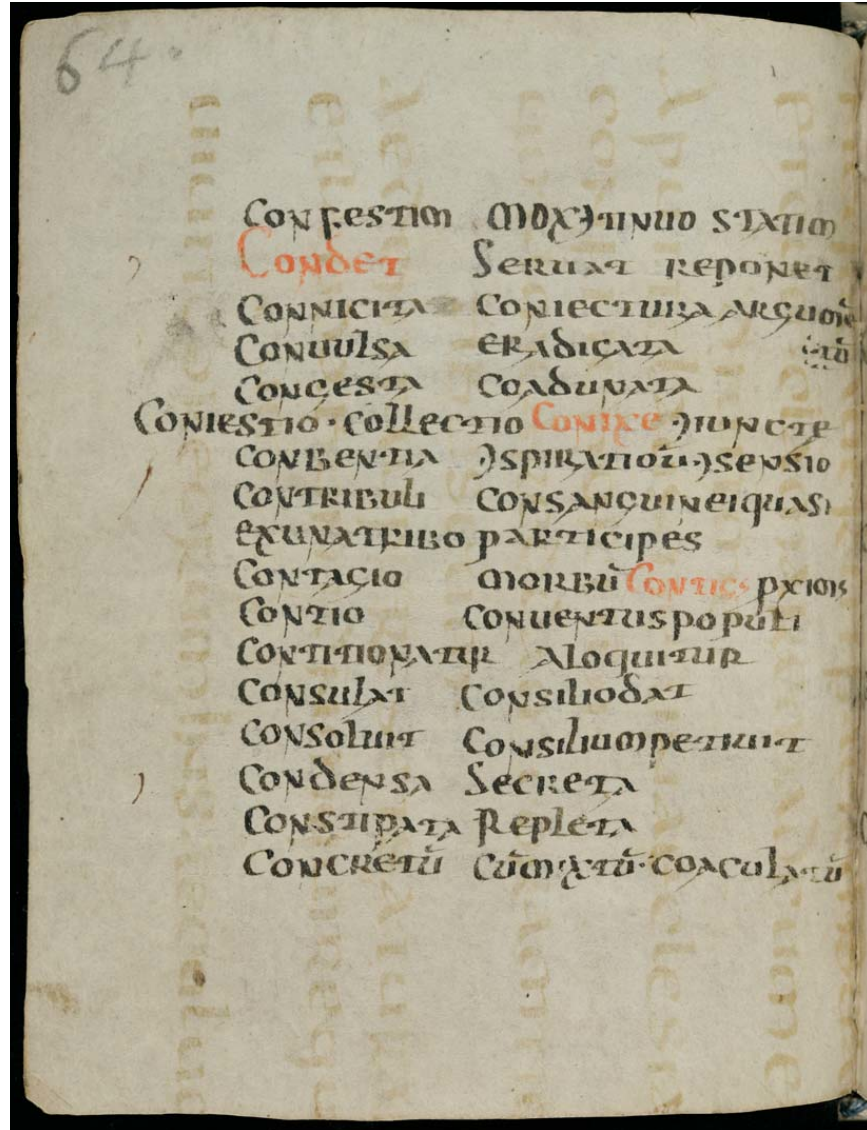 64
Confestim mox ɔtinuo statim
Condet Seruat reponet
Connicita Coniectura argum̄
Conuulsa eradicata tū
Congesta Coadunata
Coniestio · Collectio Conixe ɔiuncte
Conbentia ɔspiratio ɔsensio
Contribuli Consanguinei quasi
ex una tribo participes
Contagio morbū pximis
Contio Conuentus populi
Contitionatur Aloquitur
Consulat Consilio dat
Consoluit Consilium petiuit
Condensa Secreta
Constipata Repleta
Concretū Cūmixtū · coaculatū